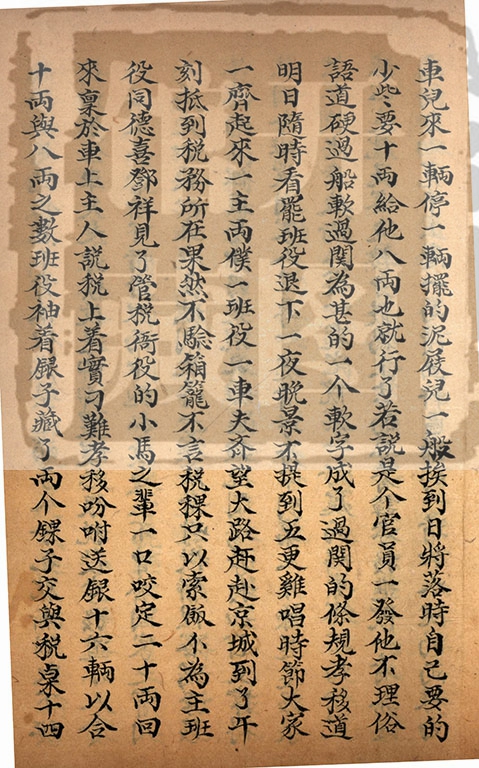 車兒來一輛停一輛擺的泥屐兒一般挨到日將落時自己要的
少些要十両給他八両也就行了若説是个官員一發他不理俗
語道硬過船軟過関為甚的一个軟字成了過関的條規孝移道
明日隨時看罷班役退下一夜晚景不提到五更雞唱時節大家
一齊起來一主両僕一班役一車夫齐望大路赶赴京城到了午
刻抵到税務所在果然不騐箱籠不言税稞只以索飯个為主班
役同德喜鄧祥見了管税衙役的小馬之輩一口咬定二十両回
來稟於車上主人説税上着實刁難孝移吩咐送銀十六輌以合
十両與八両之數班役袖着銀子藏了両个錁子交與税桌十四